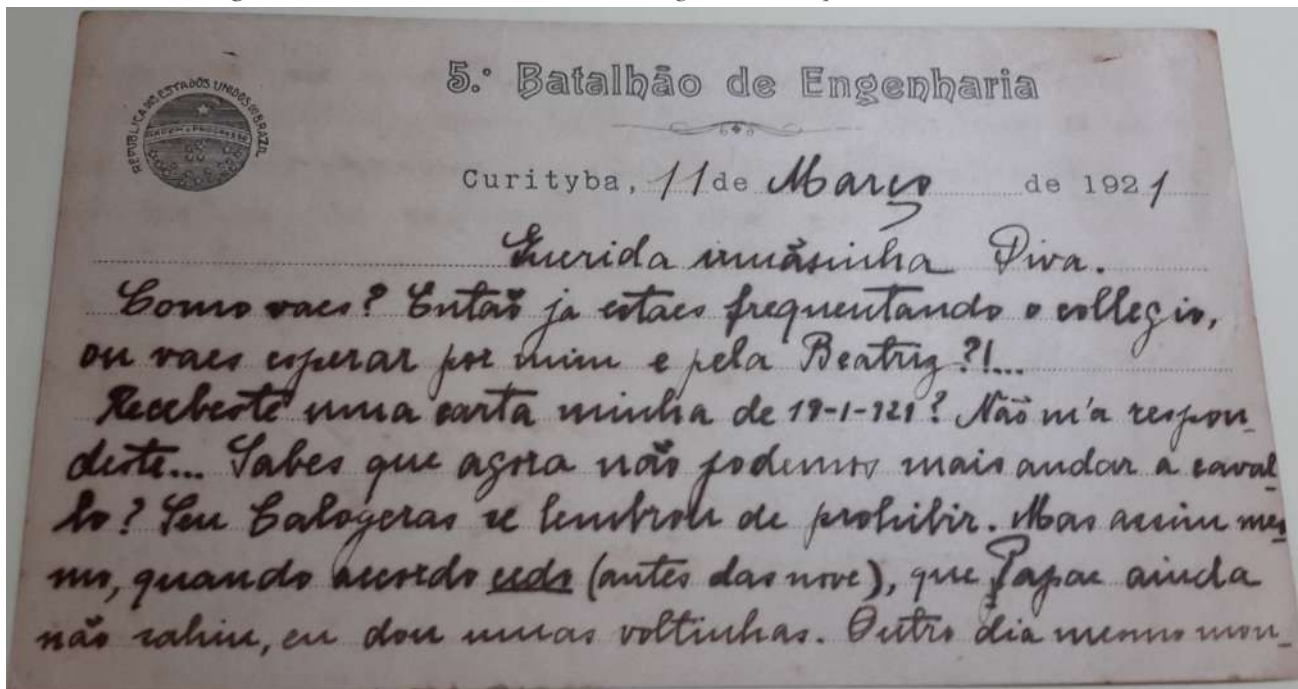 REPUBLICA DOS ESTADOS UNIDOS DO BRAZIL
ORDEM E PROGRESSO
5.º Batalhão de Engenharia
Curityba, 11 de Março de 1921
Querida irmãsinha Diva.
Como vaes? Então ja estaes frequentando o collegio,
ou vaes esperar por mim e pela Beatriz?!...
Recebeste uma carta minha de 19-1-921? Não m'a respon_
deste... Sabes que agora não podemos mais andar a caval_
lo? Seu Calogeras se lembrou de prohibir. Mas assim mes_
mo, quando accordo cedo (antes das nove), que Papae ainda
não sahiu, eu dou umas voltinhas. Outro dia mesmo mon_